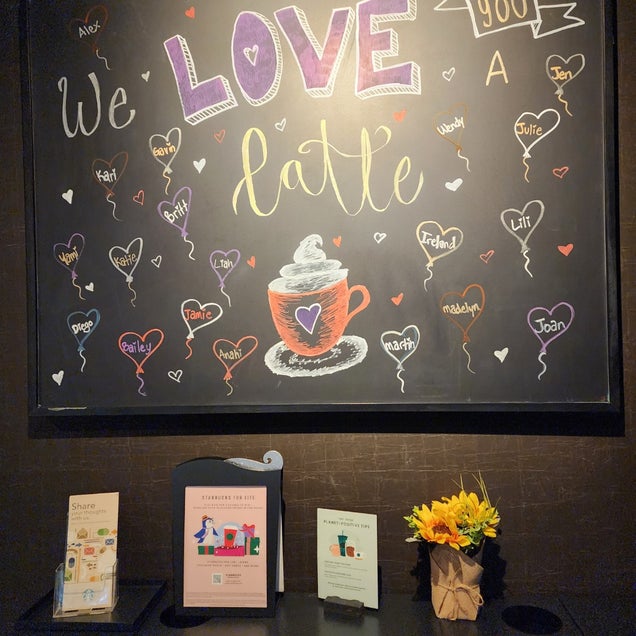 Alex
We LOVE YOU
A
Latte
Jen
Wendy
Julie
Gavin
Kari
Britt
Lili
Ireland
Yami
Katie
Liah
Diego
Jamie
Madelyn
Joan
Bailey
Anahi
martin
Share
your thoughts
with us.
STARBUCKS FOR LIFE
PLANET-POSITIVE TIPS